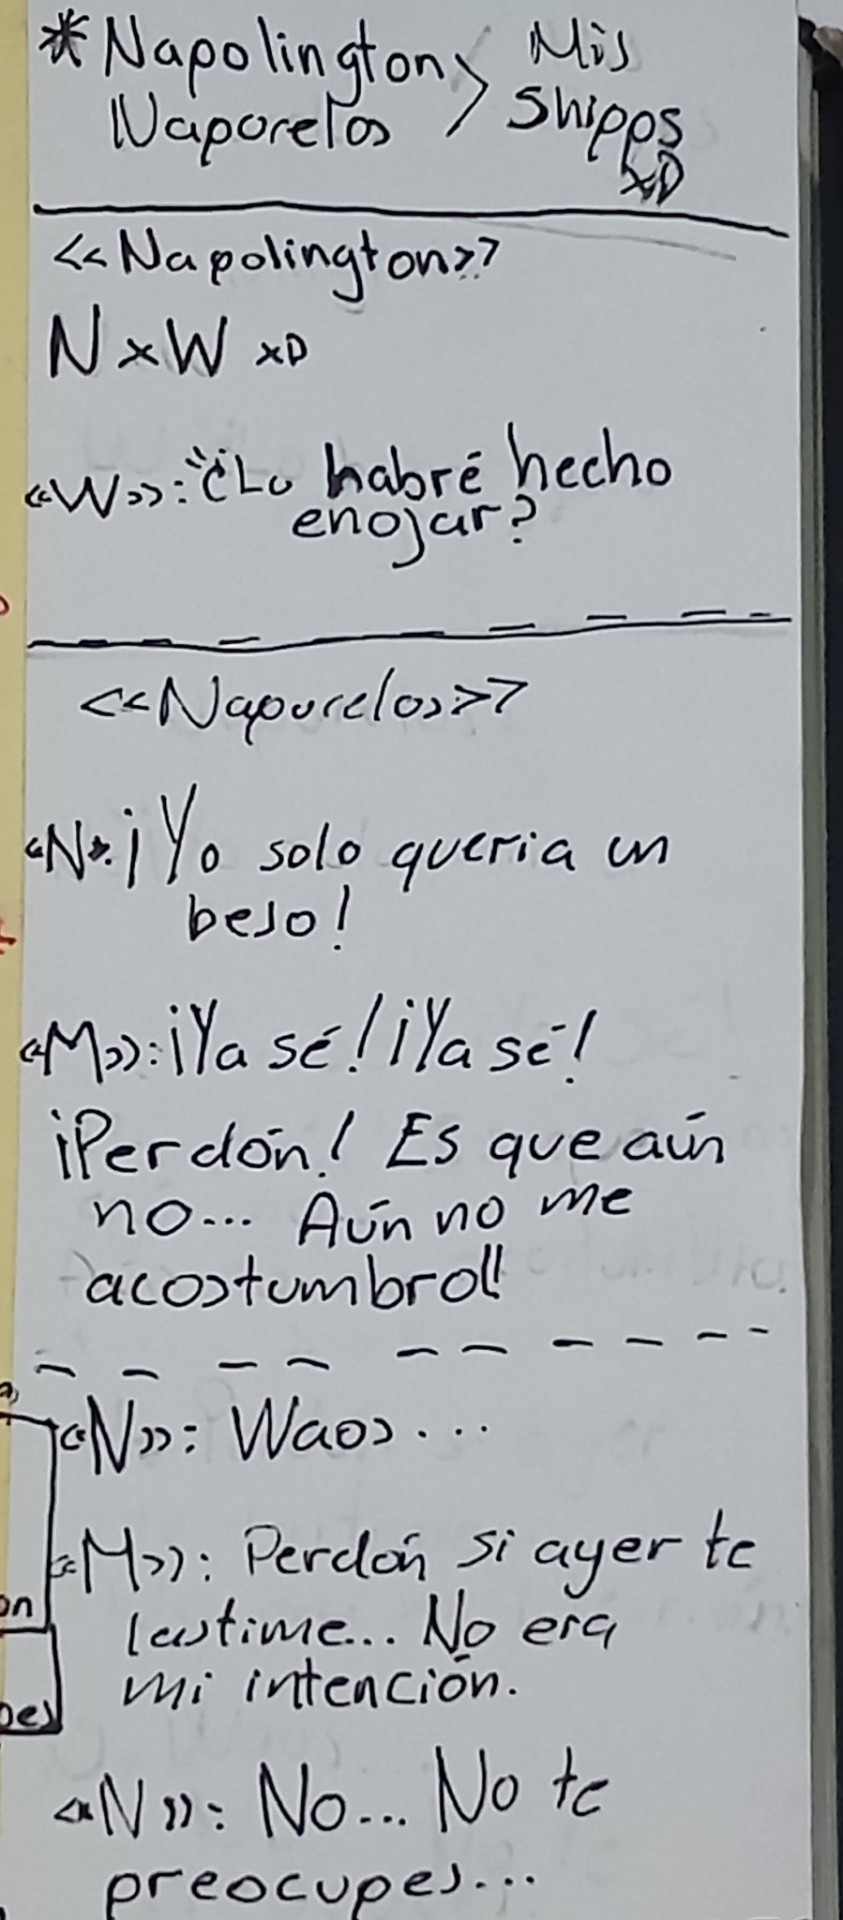 *Napolington > Mis
Naporelos Shipps
xD
<<Napolington>>
N x W xD
«W»: "¿Lo habré hecho
enojar?
<<Naporelos>>
«N»: ¡Yo solo queria un
beso!
«M»: ¡Ya sé! ¡Ya sé!
¡Perdón! Es que aún
no... Aún no me
acostumbro!!
«N»: Waos...
«M»: Perdón si ayer te
lastime... No era
mi intención.
«N»: No... No te
preocupes...